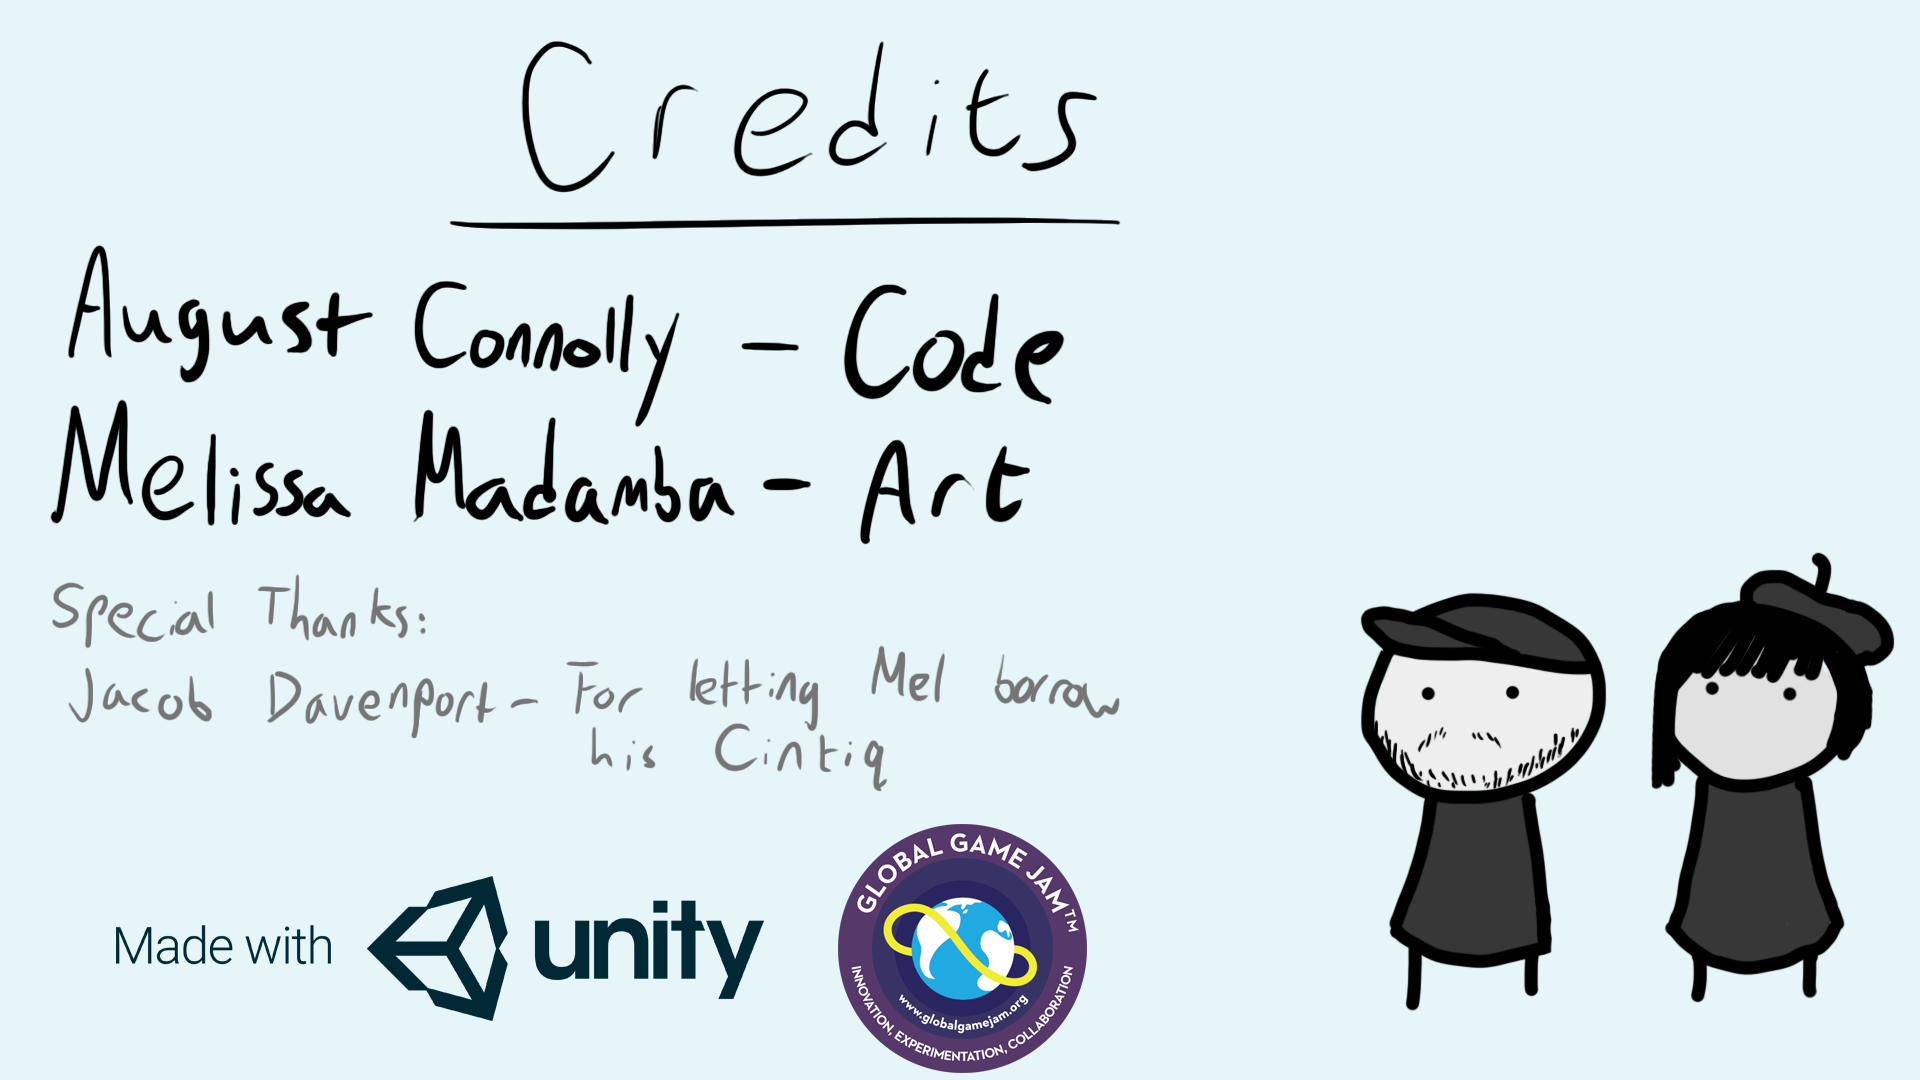 Credits
August Connolly - Code
Melissa Madamba - Art
Special Thanks:
Jacob Davenport - For letting Mel borrow
his Cintiq
Made with unity
GLOBAL GAME JAM™
www.globalgamejam.org
INNOVATION, EXPERIMENTATION, COLLABORATION